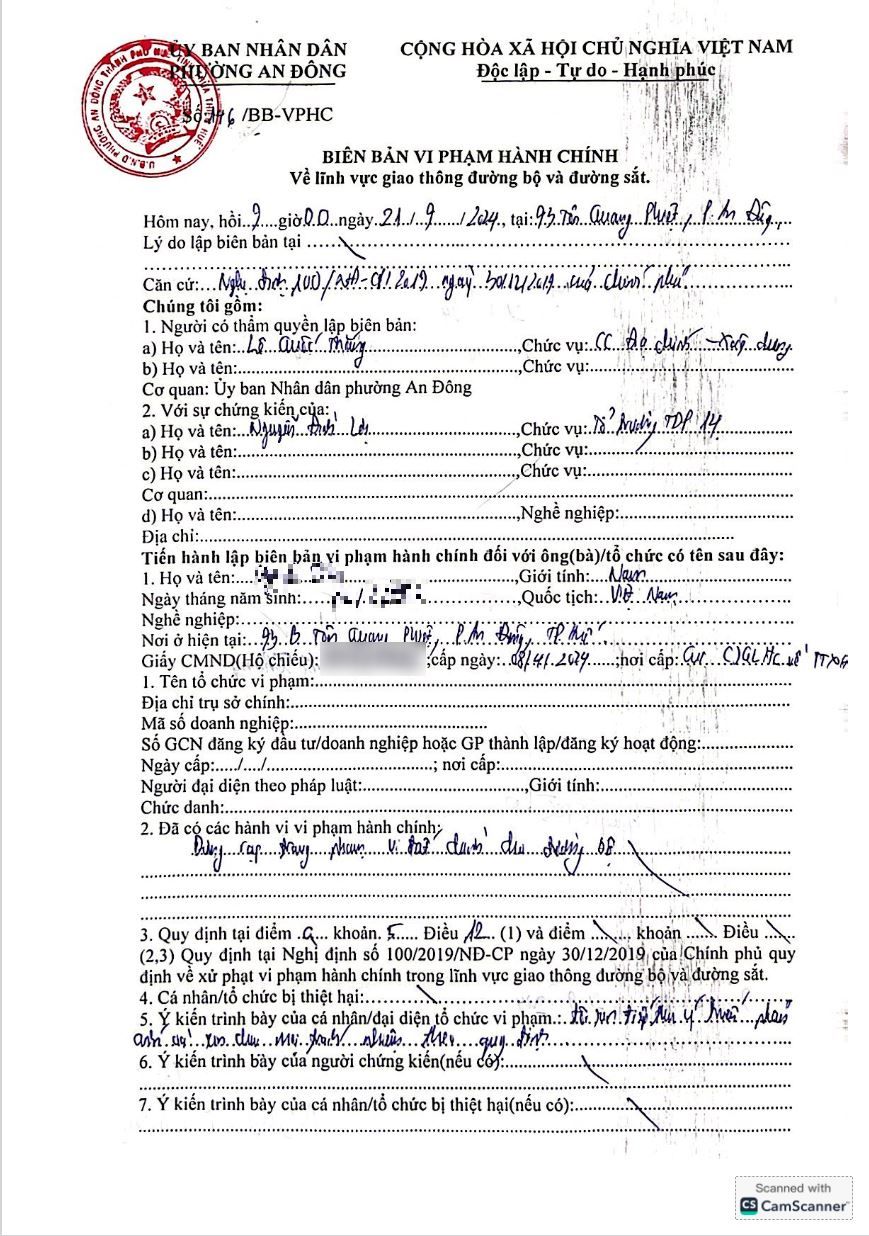 ỦY BAN NHÂN DÂN
PHƯỜNG AN ĐÔNG
CỘNG HÒA XÃ HỘI CHỦ NGHĨA VIỆT NAM
Độc lập - Tự do - Hạnh phúc
Số: 146 /BB-VPHC
BIÊN BẢN VI PHẠM HÀNH CHÍNH
Về lĩnh vực giao thông đường bộ và đường sắt.
Hôm nay, hồi 9 giờ 00 ngày 21 / 9 / 2024, tại: 93 Tôn Quang Phiệt, P. An Đông,
Lý do lập biên bản tại
Căn cứ: Nghị định 100/NĐ-CP/2019 ngày 30/12/2019 của Chính phủ
Chúng tôi gồm:
1. Người có thẩm quyền lập biên bản:
a) Họ và tên: Lê Quốc Thắng, Chức vụ: CC Địa chính - Xây dựng
b) Họ và tên:, Chức vụ:
Cơ quan: Ủy ban Nhân dân phường An Đông
2. Với sự chứng kiến của:
a) Họ và tên: Nguyễn Đình, Chức vụ: Tổ trưởng TDP 14
b) Họ và tên:, Chức vụ:
c) Họ và tên:, Chức vụ:
Cơ quan:
d) Họ và tên:, Nghề nghiệp:
Địa chỉ:
Tiến hành lập biên bản vi phạm hành chính đối với ông(bà)/tổ chức có tên sau đây:
1. Họ và tên:, Giới tính: Nam
Ngày tháng năm sinh:, Quốc tịch: Việt Nam
Nghề nghiệp:
Nơi ở hiện tại: 93 B Tôn Quang Phiệt, P. An Đông, TP. Huế
Giấy CMND(Hộ chiếu): ;cấp ngày: 08/4/2024 ;nơi cấp: Cục CSQLHC về TTXH
1. Tên tổ chức vi phạm:
Địa chỉ trụ sở chính:
Mã số doanh nghiệp:
Số GCN đăng ký đầu tư/doanh nghiệp hoặc GP thành lập/đăng ký hoạt động:
Ngày cấp:...../..../.....; nơi cấp:
Người đại diện theo pháp luật:, Giới tính:
Chức danh:
2. Đã có các hành vi vi phạm hành chính:
Dựng rạp trong phạm vi đất dành cho đường bộ
3. Quy định tại điểm a khoản 5 Điều 12 (1) và điểm khoản Điều
(2,3) Quy định tại Nghị định số 100/2019/NĐ-CP ngày 30/12/2019 của Chính phủ quy
định về xử phạt vi phạm hành chính trong lĩnh vực giao thông đường bộ và đường sắt.
4. Cá nhân/tổ chức bị thiệt hại:
5. Ý kiến trình bày của cá nhân/đại diện tổ chức vi phạm.: tôi xin tiếp thu ý kiến phản
ánh và xin chịu mọi trách nhiệm theo quy định
6. Ý kiến trình bày của người chứng kiến(nếu có):
7. Ý kiến trình bày của cá nhân/tổ chức bị thiệt hại(nếu có):
Scanned with
CS CamScanner